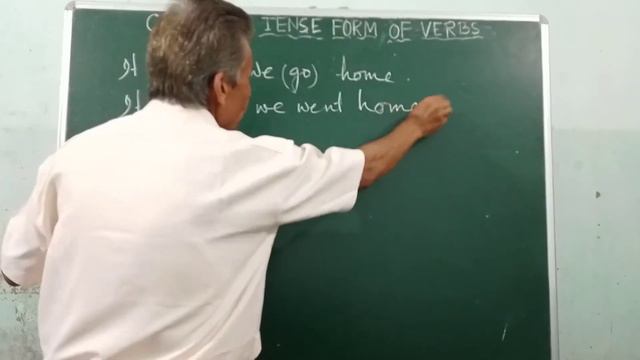 TENSE FORM OF VERBS
It we (go) home.
It we went home